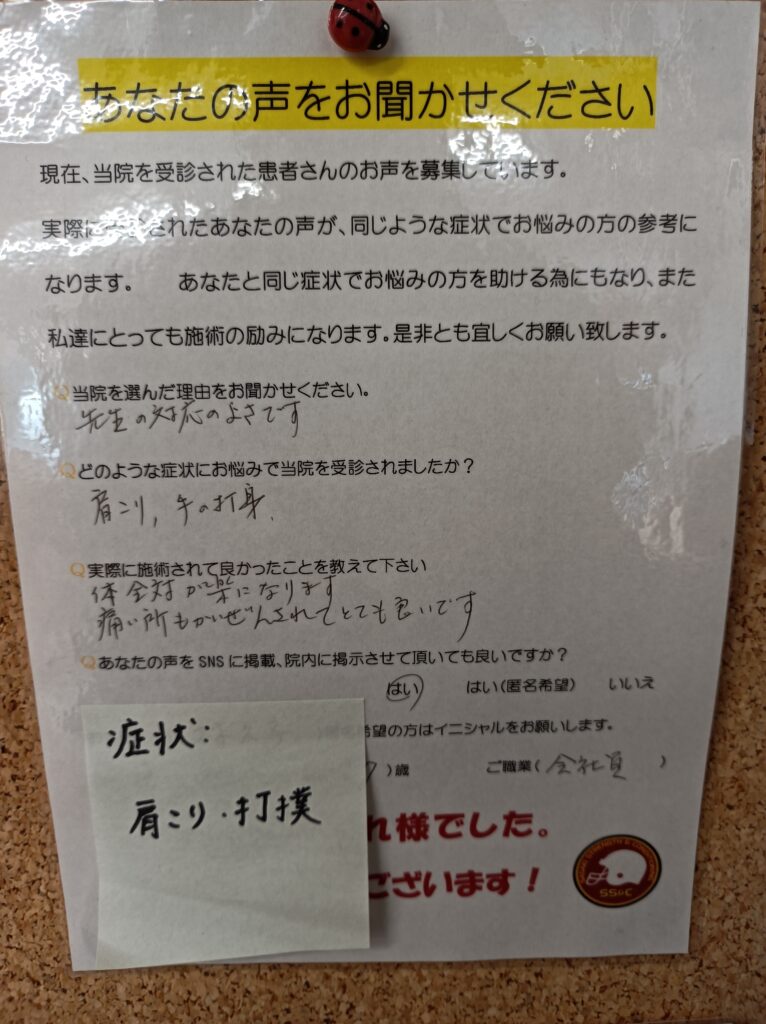 あなたの声をお聞かせください
現在、当院を受診された患者さんのお声を募集しています。
実際に されたあなたの声が、同じような症状でお悩みの方の参考に
なります。 あなたと同じ症状でお悩みの方を助ける為にもなり、また
私達にとっても施術の励みになります。是非とも宜しくお願い致します。
Q 当院を選んだ理由をお聞かせください。
先生の対応のよさです
Q どのような症状にお悩みで当院を受診されましたか？
肩こり, 手の打身.
Q 実際に施術されて良かったことを教えて下さい
体全対が楽になります
痛い所もかいぜんされてとても良いです
Q あなたの声をSNSに掲載、院内に掲示させて頂いても良いですか？
はい はい(匿名希望) いいえ
希望の方はイニシャルをお願いします。
)歳 ご職業( 会社員 )
れ様でした。
ございます！
SS&C
症状:
肩こり・打撲